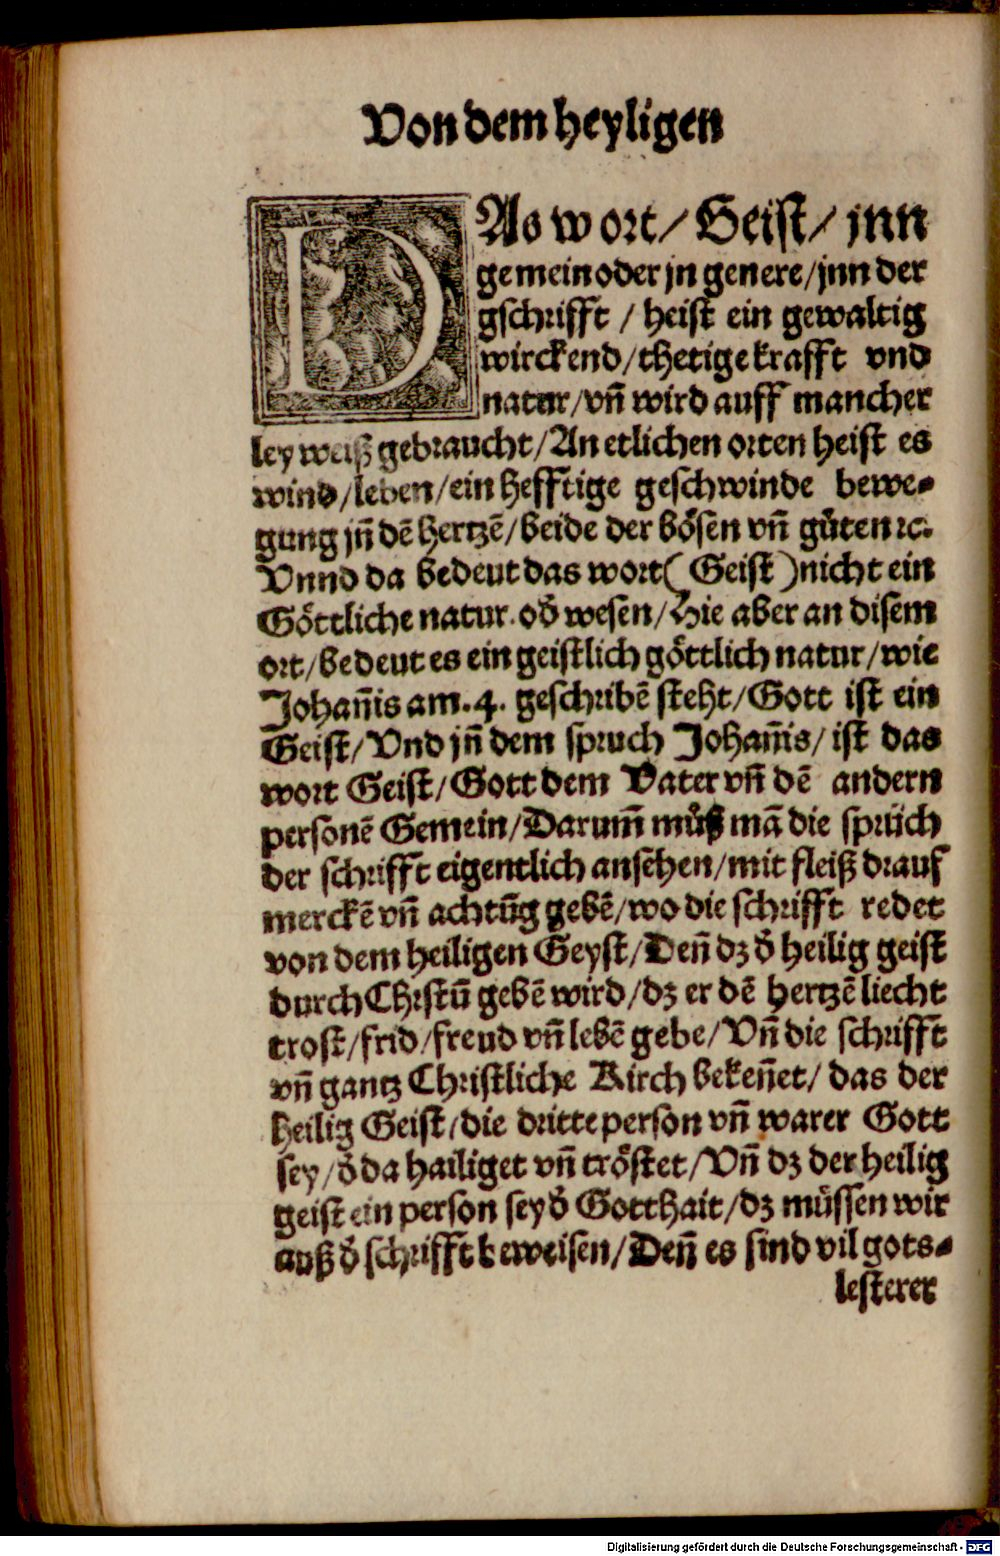 Von dem heyligen
DAs wort/ Geist/ jnn
gemein oder jn genere/jnn der
gschrifft / heist ein gewaltig
wirckend/thetige krafft vnd
natur/vñ wird auff mancher
ley weiß gebraucht/An etlichen orten heist es
wind/leben/ein hefftige geschwinde bewe⸗
gung jñ dẽ hertzẽ/beide der bösen vñ gůten ꝛc.
Vnnd da bedeut das wort( Geist )nicht ein
Göttliche natur. oď wesen/Hie aber an disem
ort/bedeut es ein geistlich göttlich natur/wie
Johañis am.4. geschribẽ steht/Gott ist ein
Geist/Vnd jñ dem spruch Johañis/ist das
wort Geist/Gott dem Vater vñ dẽ andern
personẽ Gemein/Darum̃ můß mã die sprüch
der schrifft eigentlich ansehen/mit fleiß drauf
merckẽ vñ achtũg gebẽ/wo die schrifft redet
von dem heiligen Geyst/Deñ dz ď heilig geist
durch Christũ gebẽ wird/dz er dẽ hertzẽ liecht
trost/frid/freud vñ lebẽ gebe/Vñ die schrifft
vñ gantz Christliche Kirch bekeñet/das der
heilig Geist/die dritte person vñ warer Gott
sey/ď da hailiget vñ tröstet/Vñ dz der heilig
geist ein person sey ď Gotthait/dz müssen wir
auß ď schrifft beweisen/Deñ es sind vil gots⸗
lesterer
Digitalisierung gefördert durch die Deutsche Forschungsgemeinschaft - DFG